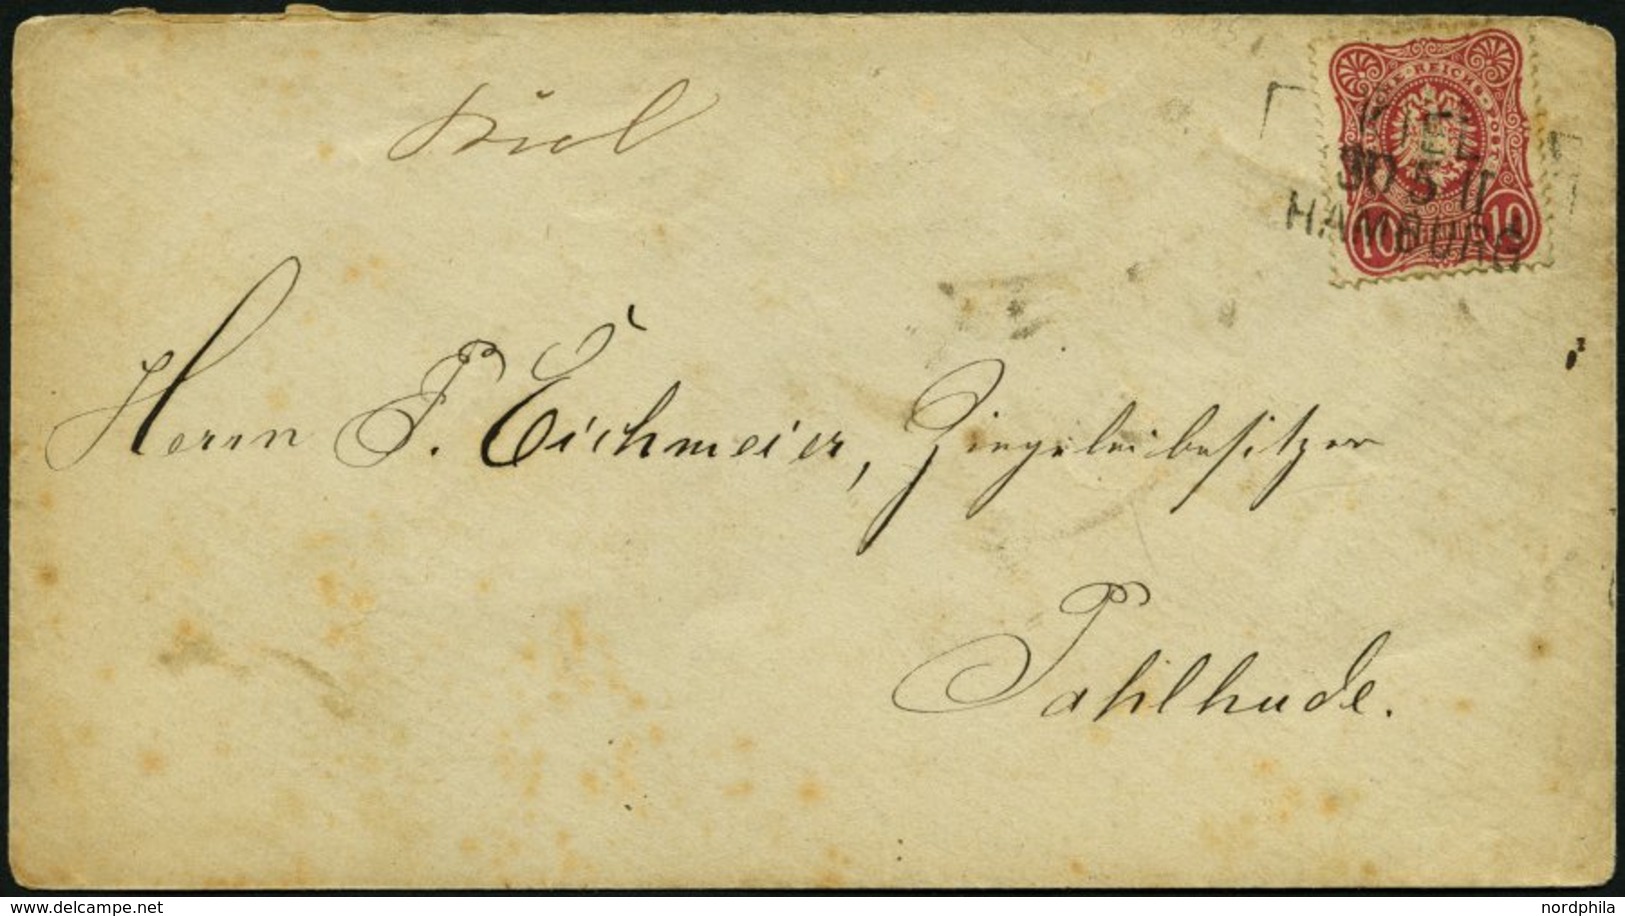 Kiel
DEUTSCHE REICHS-POST
10 PFENNIG 10
KIEL
30 5 II
HAMBURG
Herrn P. Eichmeier, Ziegeleibesitzer
Pahlhude.
www.delcampe.net
nordphila